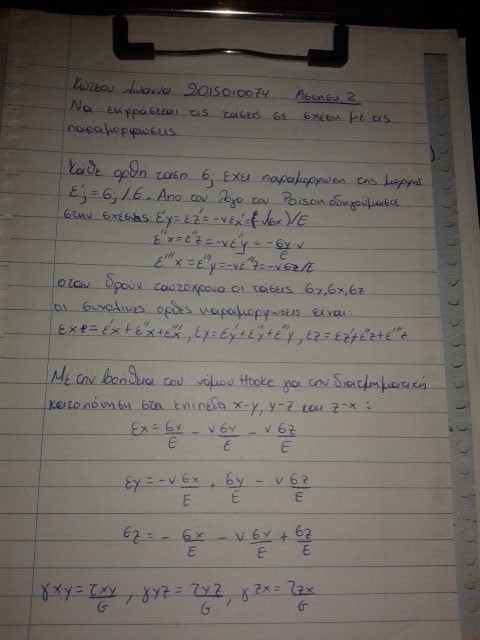 Κώτσου Ιωάννα 2015010074 Άσκηση 2
Να εκφράσεται τις τάσεις σε σχέση με τις
παραμορφώσεις
Κάθε ορθή τάση σj έχει παραμόρφωση της μορφής
ε'j = σj/E. Απο τον λόγο του Poison οδηγούμαστε
στην σχέσεις: ε'y = ε'z = -νε'x = (-νσx)/E
ε''x = ε''z = -νε''y = -σy ν/E
ε'''x = ε'''y = -νε'''z = -νσz/E
όταν δρουν ταυτόχρονα οι τάσεις σy, σx, σz
οι συνολικές ορθές παραμορφώσεις είναι:
εx = ε'x + ε''x + ε'''x, εy = ε'y + ε''y + ε'''y, εz = ε'z + ε''z + ε'''z
Με την βοήθεια του νόμου Hooke για την διατμηματική
καταπόνηση στα επίπεδα x-y, y-z και z-x:
εx = σx/E - νσy/E - νσz/E
εy = -νσx/E + σy/E - νσz/E
εz = - σx/E - νσy/E + σz/E
γxy = τxy/G, γyz = τyz/G, γzx = τzx/G